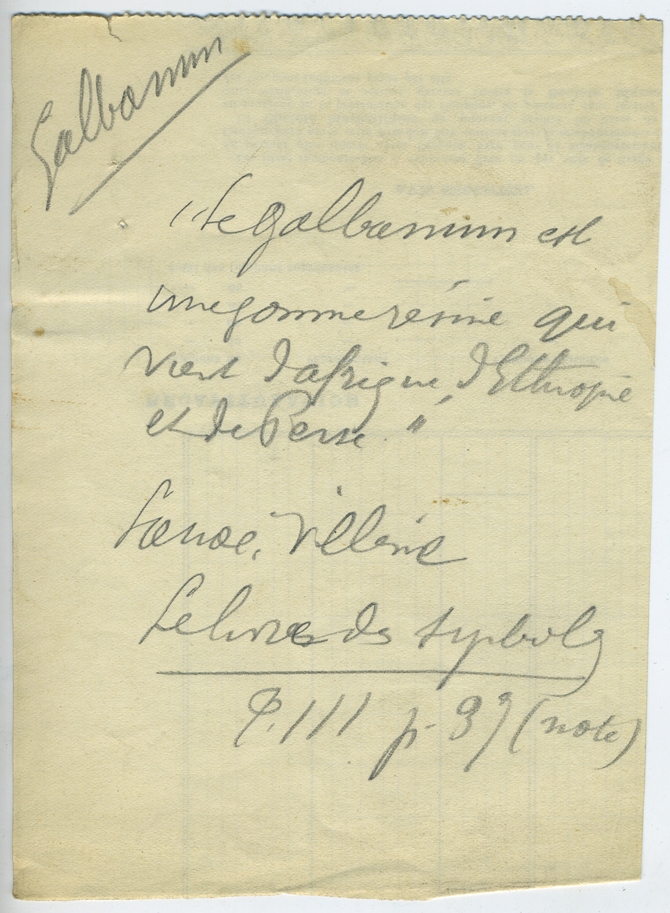 Galbanum
"Le galbanum est
une gomme résine qui
vient d'afrique, d'Ethiopie
et de Perse."
Lanoë, Villène
Le livre des symboles
P. III p. 39 (note)